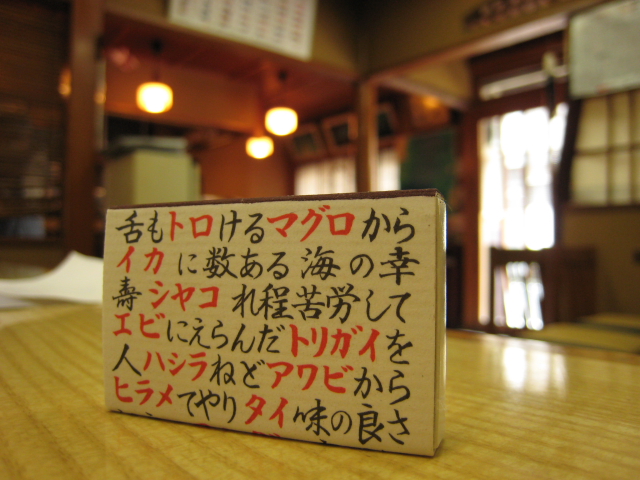 舌もトロけるマグロから
イカに数ある海の幸
寿シヤコれ程苦労して
エビにえらんだトリガイを
人ハシラねどアワビから
ヒラメてやりタイ味の良さ